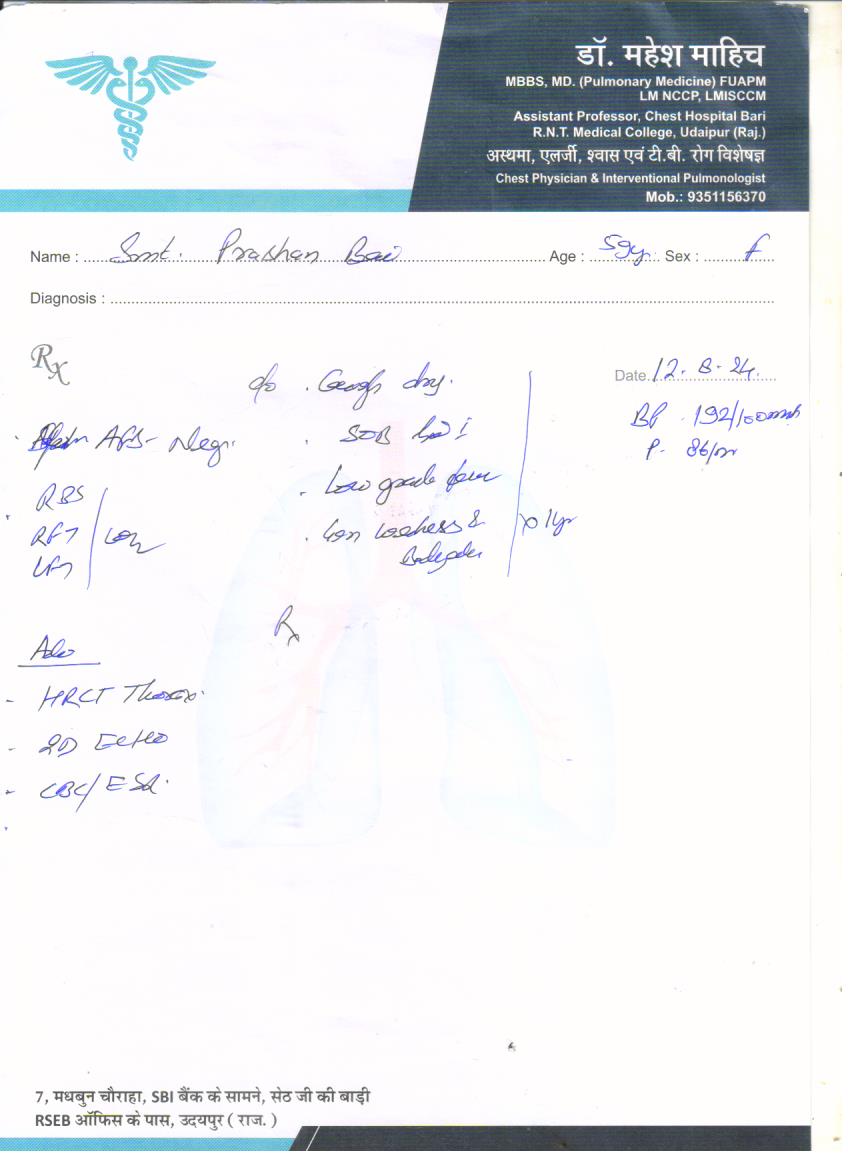 डॉ. महेश माहिच
MBBS, MD. (Pulmonary Medicine) FUAPM
LM NCCP, LMISCCM
Assistant Professor, Chest Hospital Bari
R.N.T. Medical College, Udaipur (Raj.)
अस्थमा, एलर्जी, श्वास एवं टी.बी. रोग विशेषज्ञ
Chest Physician & Interventional Pulmonologist
Mob.: 9351156370
Name : Smt. Prashan Bai Age : 59y. Sex : f
Diagnosis :
Rx
Date. 12-8-24.
c/o . Cough dry.
BP - 192/100mmh
P. 86/m
AFB- Neg.
. SOB
. Low grade fever
RBS
RFT
LFT
. &
x 1yr
Rx
Adv
- HRCT Thorax.
- 2D Echo
- CBC/ESR.
7, मधबुन चौराहा, SBI बैंक के सामने, सेठ जी की बाड़ी
RSEB ऑफिस के पास, उदयपुर ( राज. )